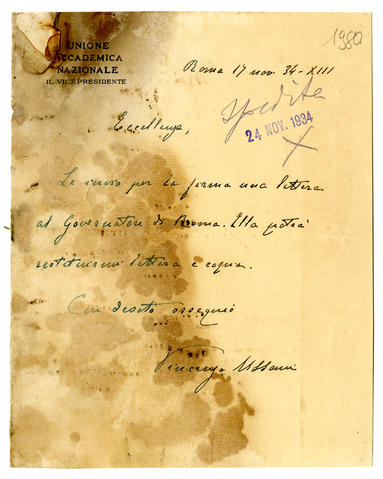 1980
UNIONE
ACCADEMICA
NAZIONALE
IL VICEPRESIDENTE
Roma 17 nov. 34-XIII
Spedita
24 NOV. 1934
X
Eccellenza,
Le invio per la firma una lettera
al Governatore di Roma. Ella potrà
restituirmi lettera e copia.
Con devoto ossequio
Vincenzo Ussani